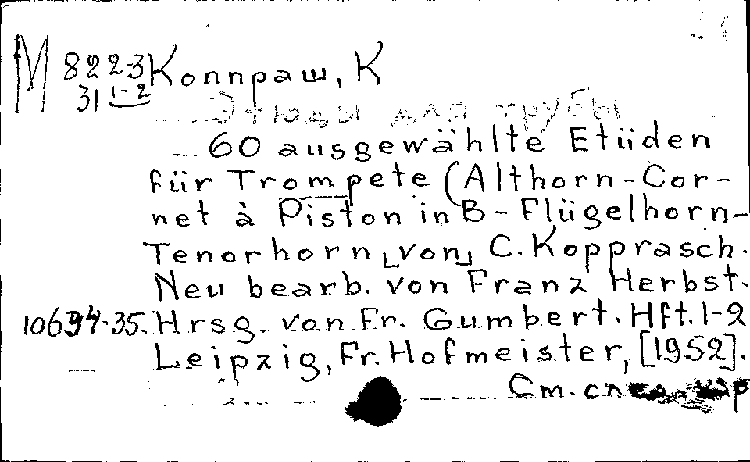 М 822-3 Коппраш, К
31 1-2
Этюды для трубы
60 ausgewählte Etüden
für Trompete (Althorn-Cor-
net à Piston in B-Flügelhorn-
Tenorhorn von C. Kopprasch.
Neu bearb. von Franz Herbst.
10634-35. Hrsg. von Fr. Gumbert. Hft. 1-2
Leipzig, Fr. Hofmeister, [1952].
См.